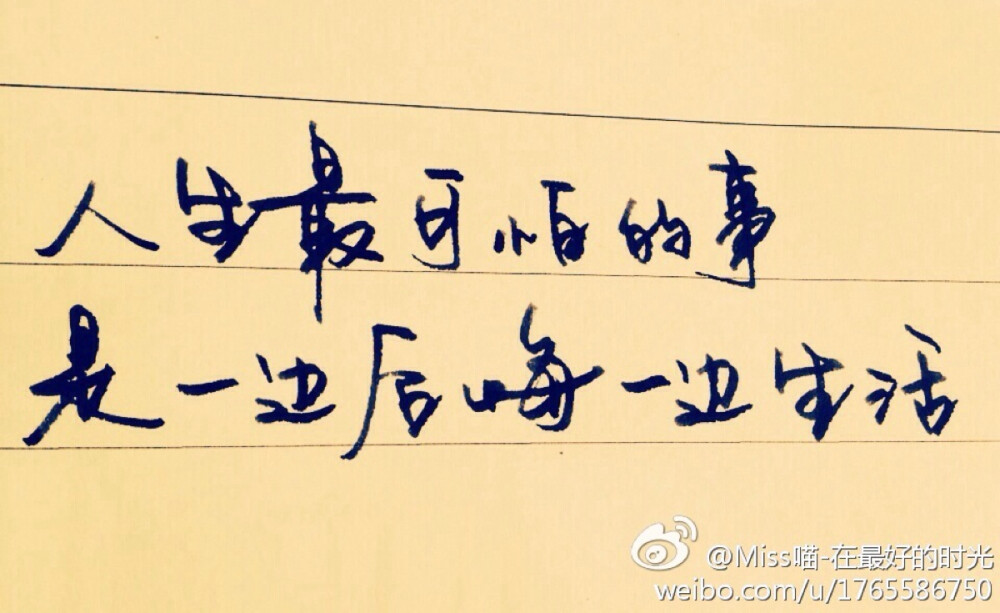 人生最可怕的事
是一边后悔一边生活
@Miss喵-在最好的时光
weibo.com/u/1765586750